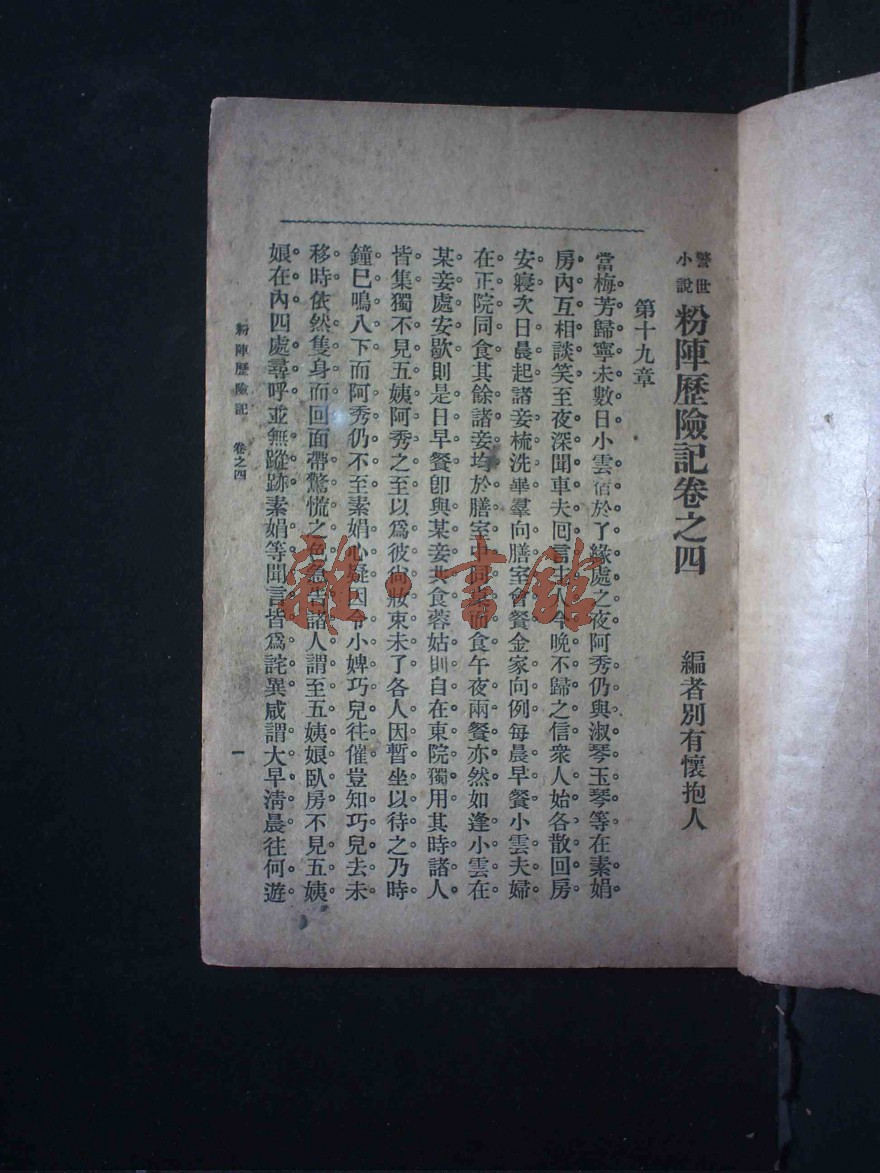 警世小說 粉陣歷險記卷之四 編者別有懷抱人
第十九章
當梅芳歸寧未數日小雲宿於了緣處之夜阿秀仍與淑琴玉琴等在素娟
房內互相談笑至夜深聞車夫回言夫人今晚不歸之信衆人始各散回房
安寢次日晨起諸妾梳洗畢羣向膳室會餐金家向例每晨早餐小雲夫婦
在正院同食其餘諸妾均於膳室中同桌而食午夜兩餐亦然如逢小雲在
某妾處安歇則是日早餐卽與某妾共食蓉姑則自在東院獨用其時諸人
皆集獨不見五姨阿秀之至以爲彼尙妝束未了各人因暫坐以待之乃時
鐘已鳴八下而阿秀仍不至素娟心疑因令小婢巧兒往催豈知巧兒去未
移時依然隻身而回面帶驚慌之色急告諸人謂至五姨娘臥房不見五姨
娘在內四處尋呼並無蹤跡素娟等聞言皆爲詫異咸謂大早淸晨往何遊
粉陣歷險記 卷之四 一
雜·書館